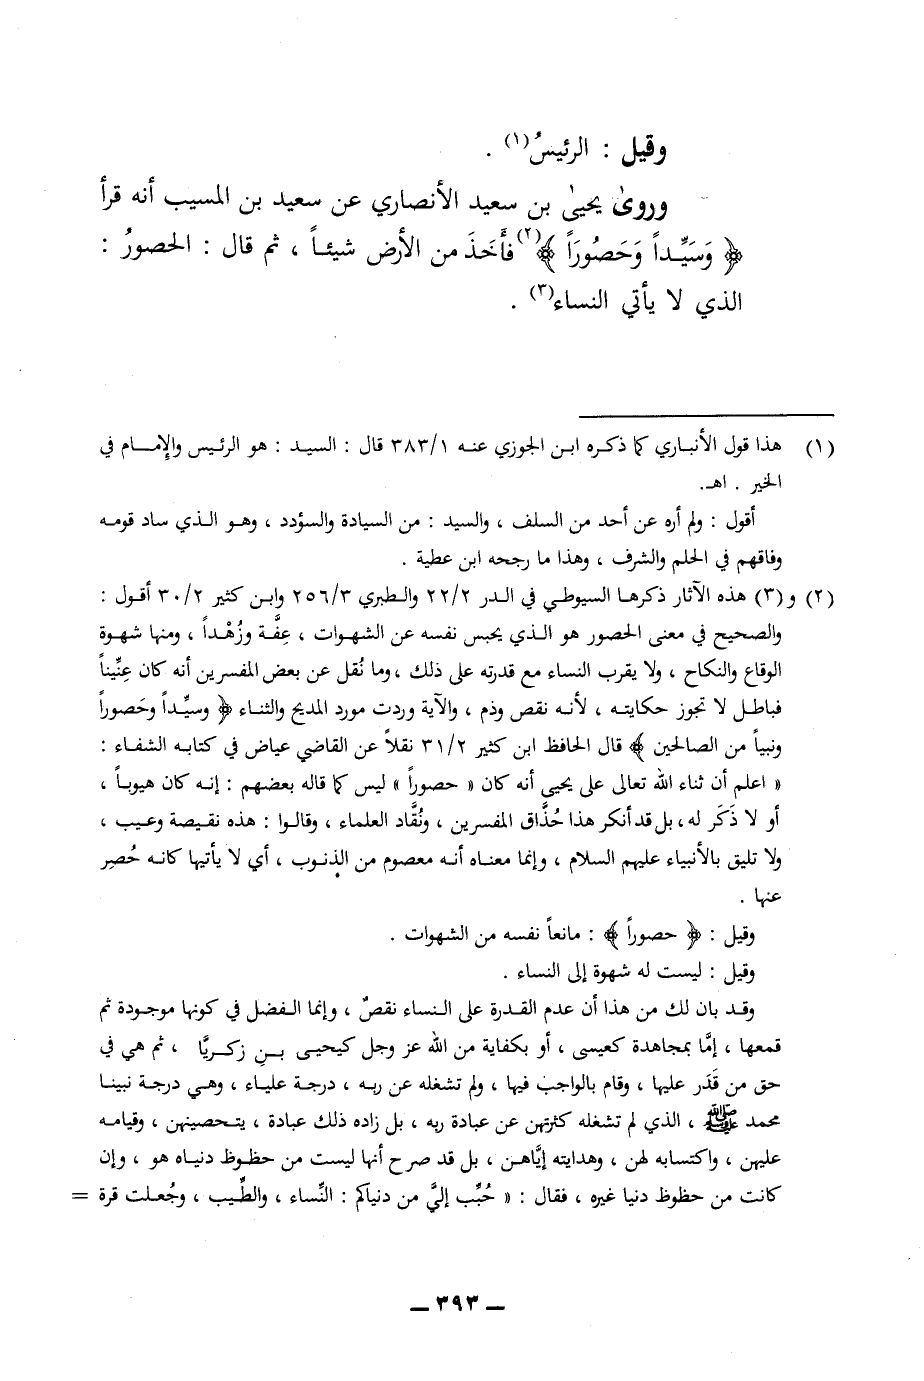 وقيل : الرئيسُ(١) .
وروىٰ يحيىٰ بن سعيد الأنصاري عن سعيد بن المسيب أنه قرأ
﴿ وَسَيِّداً وَحَصُورَاً ﴾(٢) فأَخَذَ من الأرض شيئاً ، ثم قال : الحصورُ :
الذي لا يأتي النساء(٣) .
(١) هذا قول الأنباري كما ذكره ابن الجوزي عنه ٣٨٣/١ قال : السيد : هو الرئيس والإمام في
الخير . اهـ.
أقول : ولم أره عن أحد من السلف ، والسيد : من السيادة والسؤدد ، وهو الذي ساد قومه
وفاقهم في الحلم والشرف ، وهذا ما رجحه ابن عطية .
(٢) و(٣) هذه الآثار ذكرها السيوطي في الدر ٢٢/٢ والطبري ٢٥٦/٣ وابن كثير ٣٠/٢ أقول :
والصحيح في معنى الحصور هو الذي يحبس نفسه عن الشهوات ، عِفَّة وزُهْداً ، ومنها شهوة
الوقاع والنكاح ، ولا يقرب النساء مع قدرته على ذلك ، وما نُقل عن بعض المفسرين أنه كان عِنِّيناً
فباطل لا تجوز حكايته ، لأنه نقص وذم ، والآية وردت مورد المديح والثناء ﴿ وسيِّداً وحَصوراً
ونبياً من الصالحين ﴾ قال الحافظ ابن كثير ٣١/٢ نقلاً عن القاضي عياض في كتابه الشفاء :
« اعلم أن ثناء الله تعالى على يحيى أنه كان « حصوراً » ليس كما قاله بعضهم : إنه كان هيوباً ،
أو لا ذَكَر له ، بل قد أنكر هذا حُذَّاق المفسرين ، ونُقَّاد العلماء ، وقالوا : هذه نقيصة وعيب ،
ولا تليق بالأنبياء عليهم السلام ، وإنما معناه أنه معصوم من الذنوب ، أي لا يأتيها كانه حُصِر
عنها .
وقيل : ﴿ حصوراً ﴾ : مانعاً نفسه من الشهوات .
وقيل : ليست له شهوة إلى النساء .
وقد بان لك من هذا أن عدم القدرة على النساء نقصٌ ، وإنما الفضل في كونها موجودة ثم
قمعها ، إمَّا بمجاهدة كعيسى ، أو بكفاية من الله عز وجل كيحيى بن زكريَّا ، ثم هي في
حق من قَدَر عليها ، وقام بالواجب فيها ، ولم تشغله عن ربه ، درجة علياء ، وهي درجة نبينا
محمد ﷺ ، الذي لم تشغله كثرتهن عن عبادة ربه ، بل زاده ذلك عبادة ، بتحصينهن ، وقيامه
عليهن ، واكتسابه لهن ، وهدايته إيَّاهن ، بل قد صرح أنها ليست من حظوظ دنياه هو ، وإن
كانت من حظوظ دنيا غيره ، فقال : « حُبِّب إليَّ من دنياكم : النِّساء ، والطِّيب ، وجُعلت قرة =
ــ ٣٩٣ ــ